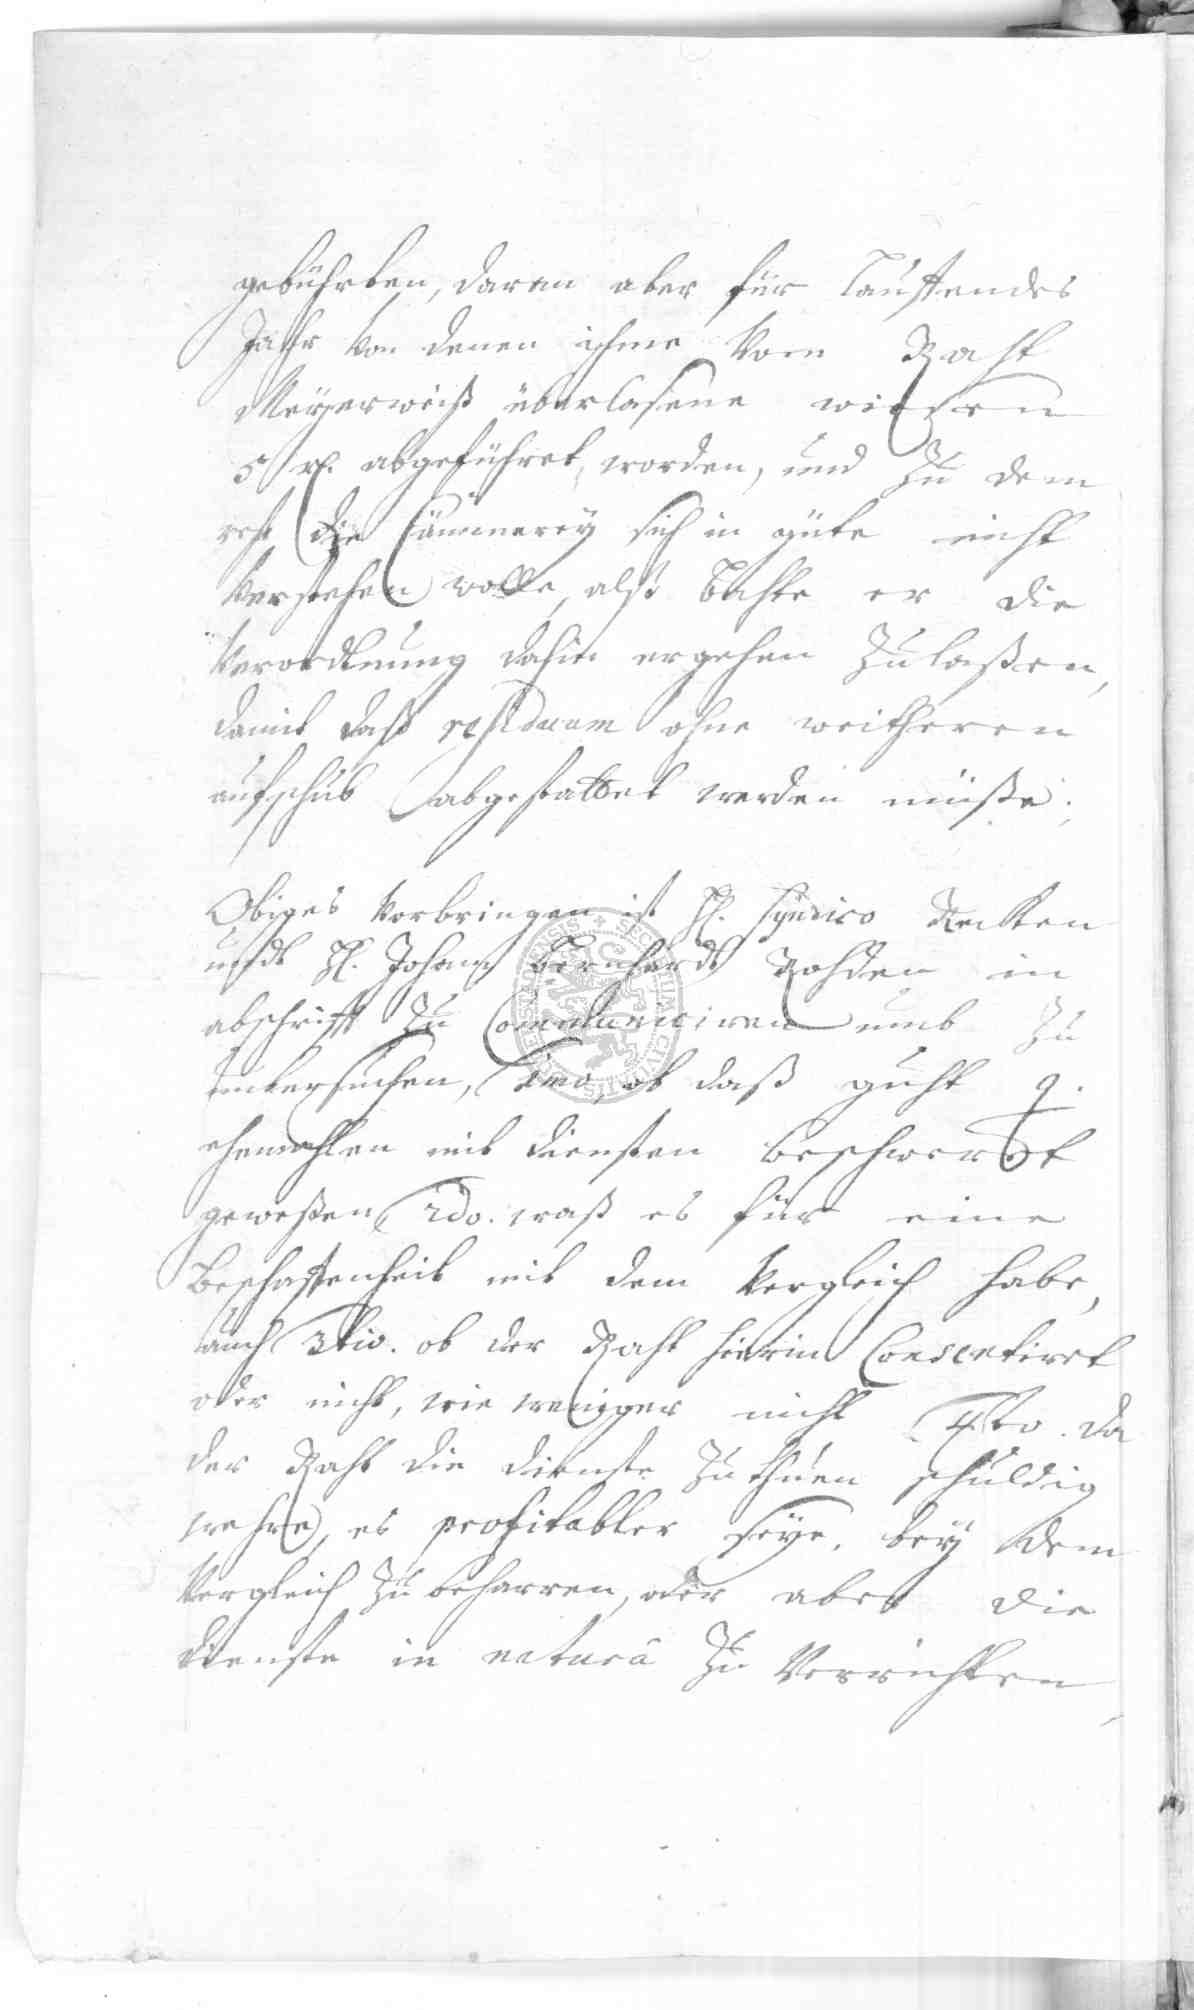 gebührten, daran aber für lauffendes
Jahr von denen ihme vom Raht
Meÿerweiß überlasene wiesen
5 rt. abgeführet worden, und zu dem
rest die Cämmereÿ sich in güte nicht
verstehen wolle, alß bähte er die
Verordnung dahin ergehen zulaßen,
damit daß residuum ohne weitheren
aufschub abgestattet werden müße;
Obiges vorbringen ist H. Syndico
undt H. Johann Bernhardt Rohden in
abschrifft zu Communiciren umb zu
untersuchen, 1mo, ob daß guht q.
ehemahlen mit diensten beschwert
geweßen 2do. waß es für eine
Beschaffenheit mit dem Vergleich habe,
auch 3tio. ob der Raht hierin Consentiret
oder nicht, wie weniger nicht 4to. da
der Raht die dienste zuthuen schuldig
wehre, es profitabler seÿe, beÿ dem
Vergleich zu beharren, oder aber die
dienste in naturâ zu Verrichten,
SECRETUM CIVITATIS